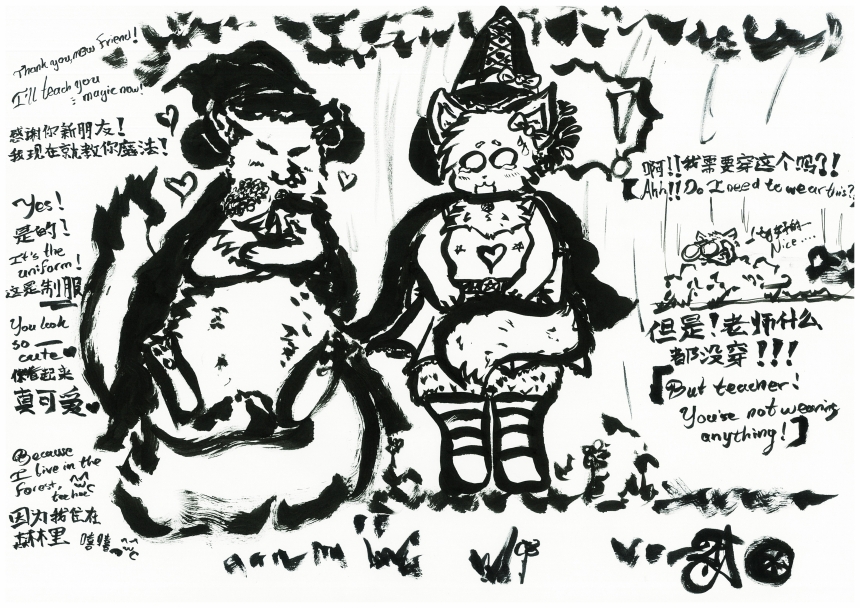 Thank you, new friend!
I'll teach you
magic now!
感谢你新朋友!
我现在就教你魔法!
Yes!
是的!
It's the
uniform!
这是制服
You look
so
cute
你看起来
真可爱
Because
I live in the
forest,
因为我住在
森林里
嘻嘻
啊!!我需要穿这个吗?!!
Ahh!! Do I need to wear this?
Nice....
但是!老师什么
都没穿!!!
[But teacher!
You're not wearing
anything!]